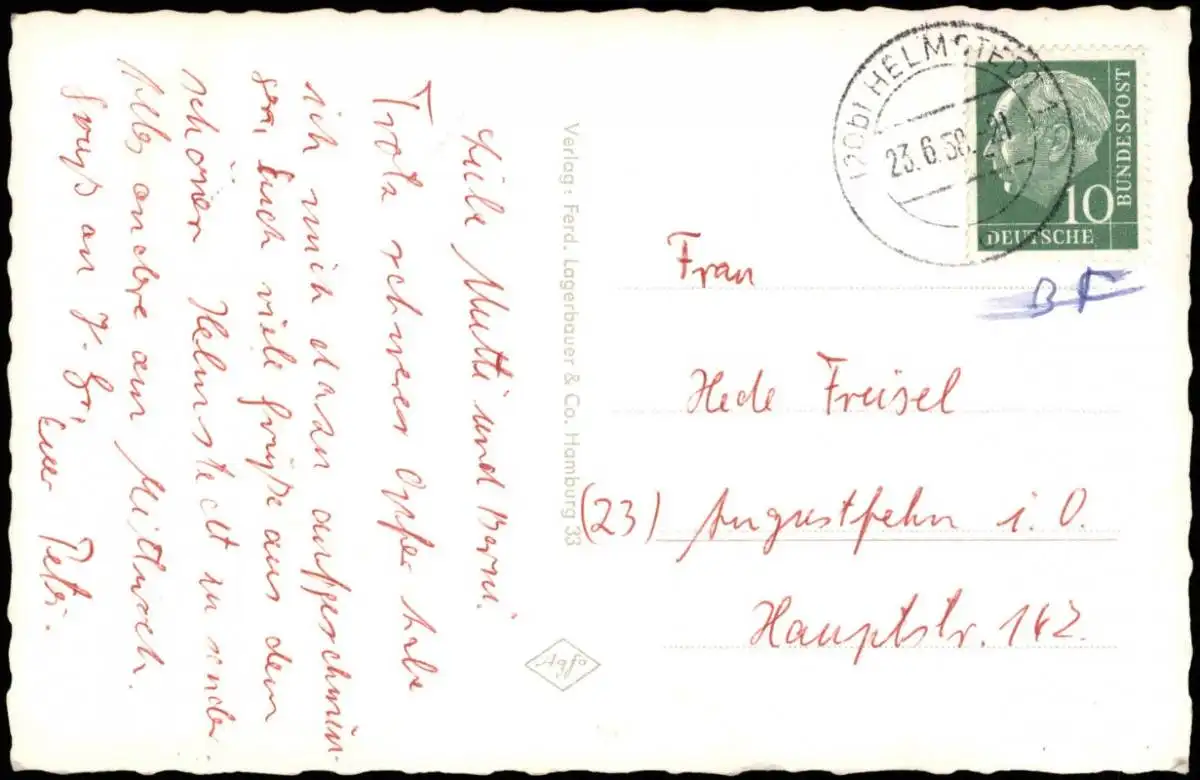 Liebe Mutti und Berni.
Trotz schwerer Opfer habe
ich mich dazu aufgeschwun-
gen, Euch viele Grüße aus dem
schönen Helmstedt zu senden.
Alles andere am Mittwoch.
Gruß an
Euer Peter.
Verlag: Ferd. Lagerbauer & Co. Hamburg 33
Agfa
(20b) HELMSTEDT
23.6.58.-21
BUNDESPOST
10
DEUTSCHE
Frau
Hede Freisel
(23) Augustfehn i. O.
Hauptstr. 142.